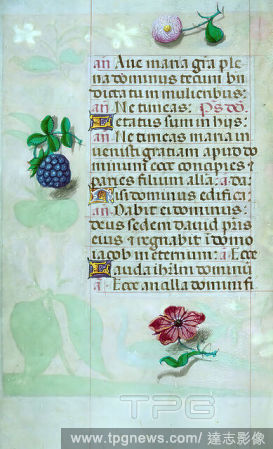 an Aue maria gra ple
na dominus tecum bn
dicta tu in mulieribus:
an Ne timeas: Ps do.
Letatus sum in hijs:
an Ne timeas maria in
uenisti gratiam apud do
minum ecce concipies et
paries filium alla: a da:
Nisi dominus edifica:
an Dabit ei dominus:
deus sedem dauid pris
eius et regnabit i domo
iacob in eternum: a Ecce
Lauda ihrlm dominum
a Ecce ancilla domini fi
TPG
www.tpgnews.com/ 達志影像